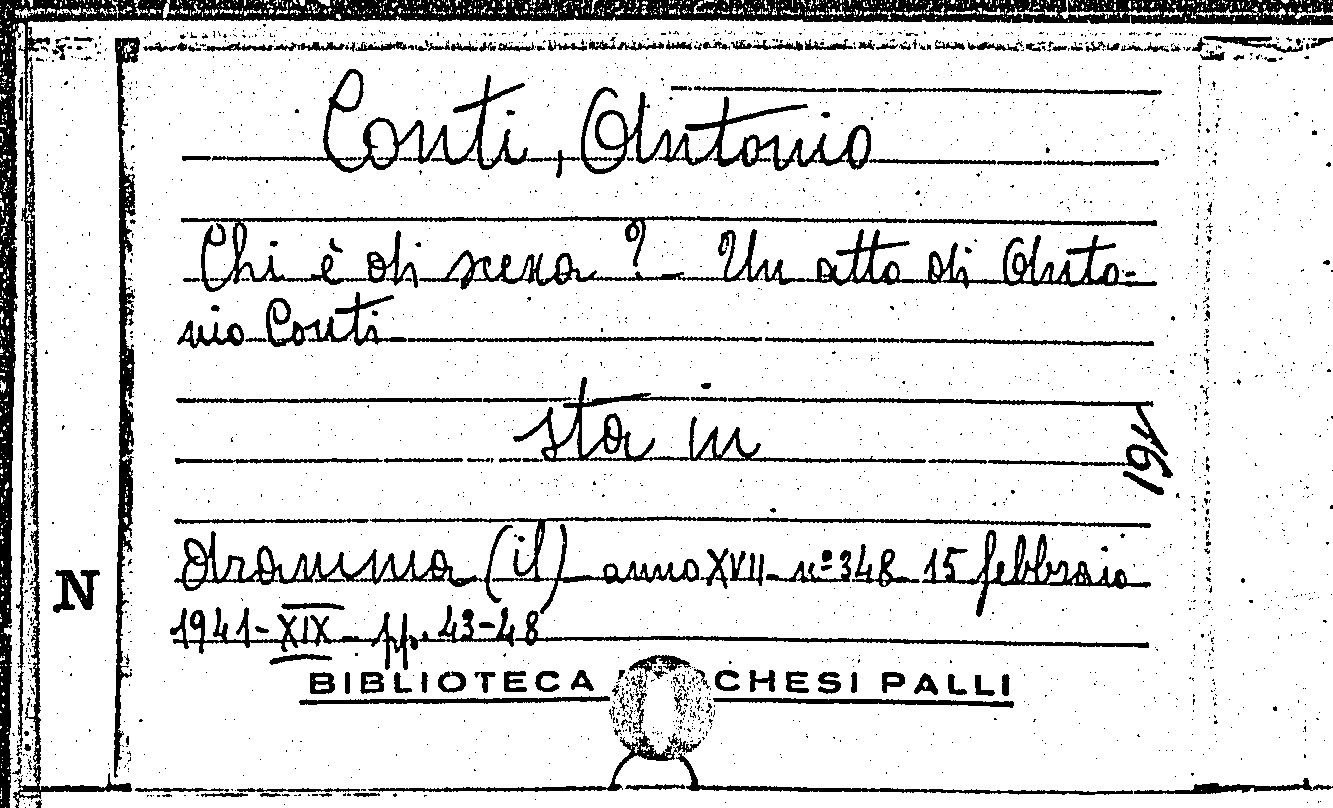 Conti, Antonio
Chi è di scena? - Un atto di Anto-
nio Conti
sta in
191
dramma (il) - anno XVII - n° 348 - 15 febbraio
1941 - XIX - pp. 43-48
N
BIBLIOTECA CHESI PALLI